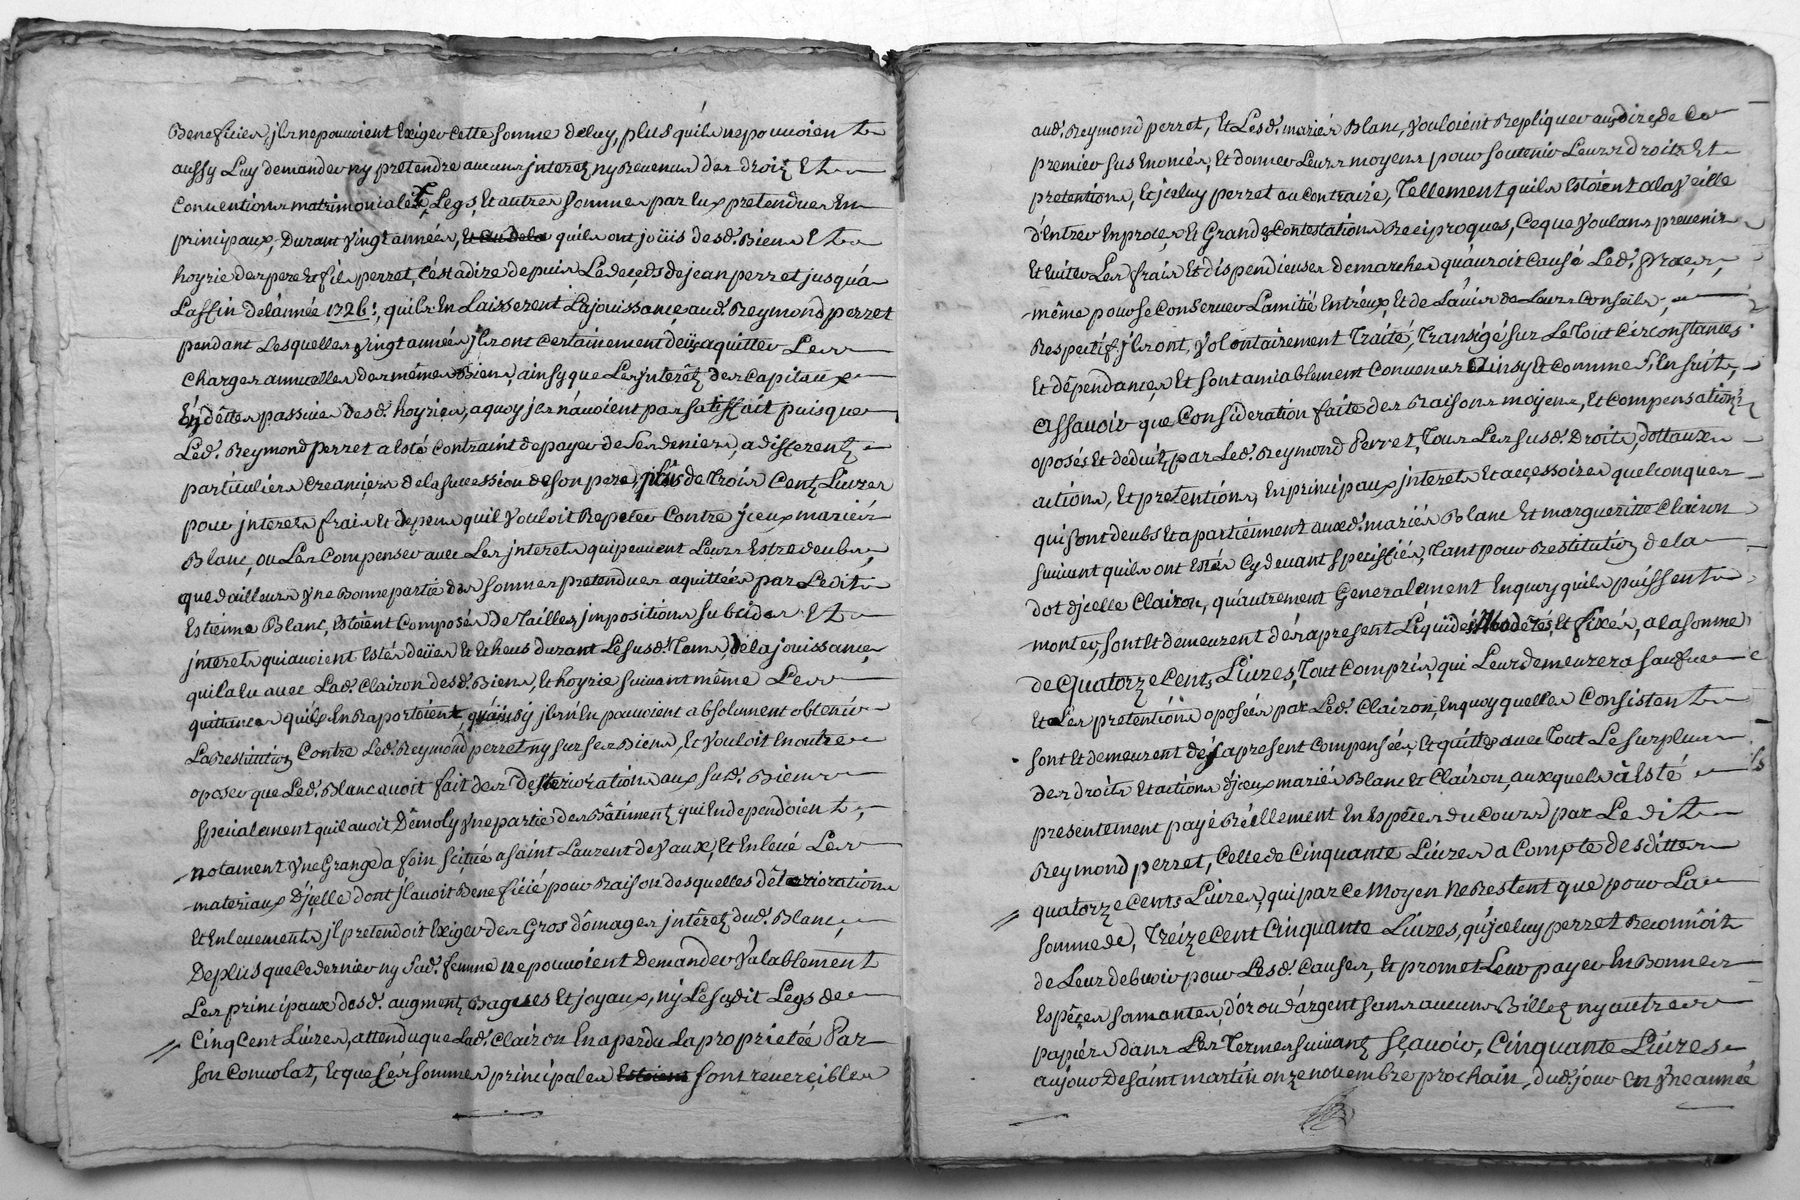 Beneficier, jls ne pouvoient Exiger cette somme deluy, plus quils ne pouvoient
aussy Luy demander ny pretendre aucuns jnterez ny Revenus des droiz Et
Conventions matrimoniales, Legs, Et autres sommes par Eux pretendues En
principaux, Durant vingt années, Et au dela quils ont joüis desd. Biens Et
hoyrie des pere Et fils perret, C'est adire depuis Le deceds de jean perret jusqu'a
Laffin de L'année 1726:, quils En Laisserent La jouissance aud. Reymond perret
pendant Lesquelles vingt années jls ont certainement deü aquitter Les
charges annuelles des mêmes Biens, ainsy que Les jnterêtz des capitaux
En dêttes passives desd. hoyries, aquoy jls n'avoient pas satisffait puisque
Led. Reymond perret a Esté contraint de payer de ses deniers, a differentz
particuliers creanciers de la succession de son pere, plus de Trois Centz Livres
pour jnterets frais Et dépens quil vouloit Repeter Contre jceux mariés
Blanc, ou Les Compenser avec Les jnterets qui peuvent Leurs Estre deubs,
que d'ailleurs vne Bonne partie des sommes pretendues aquittées par Ledit
Estienne Blanc, Estoient Composés de Tailles, jmpositions subsides Et
jnterets qui avoient Estés deües Et Echeus durant Le susd. Tems, de la jouissance
quil a Eu avec Lad. Clairon desd. Biens, Et hoyrie suivant même Les
quittances quils En Raportoient, qu'ainsy jls n'En pouvoient absolument obtenir
La Restitution Contre Led. Reymond perret ny sur ses Biens, Et vouloit En outre
oposer que Led. Blanc avoit fait des deteriorations aux sud. Biens
specialement quil avoit Dêmoly vne partie des Bâtimentz qui En dependoient,
notament vne Grange a foin scituée a saint Laurent de vaux, Et Enlevé Les
materiaux D'jcelle dont jl avoit Beneficié pour Raison desquelles dêteriorations
Et Enlevements jl pretendoit Exiger des Gros dômages jntêrez dud. Blanc,
De plus que ce dernier ny sad. femme ne pouvoient Demander valablement
Les principaux desd. augmentz Bagues Et joyaux, ny Le susdit Legs de
Cinq Cent Livres, attendu que Lad. Clairon En a perdu La proprietée Par
son Convolat, Et que ses sommes principales Estoient sont reversibles
aud. Reymond perret, Et Lesd. mariés Blanc, vouloient Repliquer aux dires de Ce
premier sus Enoncés, Et donner Leurs moyens pour soutenir Leurs droits Et
pretentions, Et jceluy perret au contraire, Tellement quils Estoient a la veille
d'Entrer En procés Et Grandes Contestations Reciproques, Ce que voulans prevenir
Et Eviter Les frais Et dispendieuses demarches qu'auroit causé Led. procés,
même pour se Conserver L'amitié Entr'eux, Et de L'avis de Leurs Conseils,
Respectif. jls ont, volontairement Traité, Transigé sur Le Tout Circonstances
Et dêpendances Et sont amiablement Convenus Ainsy Et comme s'En suit,
Assavoir que Consideration faite des Raisons moyens, Et Compensations
oposés Et deduitz par Led. Reymond Perret, Tous Les susd. Droits, dottaux
actions, Et pretentions, En principaux jnterets Et accessoires quelconques
qui sont deubs Et apartiennent auxd. mariés Blanc Et margueritte Clairon
suivant quils ont Estés Cy devant speciffiés, Tant pour Restitution de la
dot d'jcelle Clairon, qu'autrement Generalement En quoy quils puissent
monter, sont Et demeurent dés apresent Liquidés, Modérés, Et fixés, a la somme
de Quatorze Cents Livres, Tout Compris, qui Leur demeurera sauffve
Et Les pretentions oposées par Led. Clairon, En quoy quelles Consistent
sont Et demeurent dés apresent Compensées, Et quittés avec Tout Le surplus
des droits Et actions d'jceux mariés Blanc Et Clairon, auxquels â Esté
presentement payé Réellement En Espêces du Cours par Ledit
Reymond perret, Celle de Cinquante Livres a Compte desdittes
quatorze Cents Livres, qui par ce Moyen ne Restent que pour La
somme de, Treize Cent Cinquante Livres, qu'jceluy perret Reconnoit
de Leur debvoir pour Lesd. Causes, Et promet Leur payer En Bonnes
Espêçes sonantes, d'or ou d'argent sans aucuns Billetz ny autres
papiers dans Les Termes suivantz sçavoir, Cinquante Livres
au jour De saint martin onze novembre prochain, dud. jour En vne année